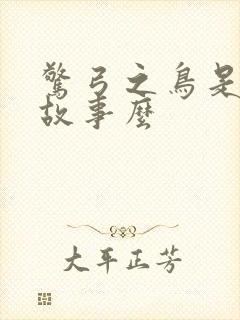 驚弓之鳥是
故事麼
大平正芳